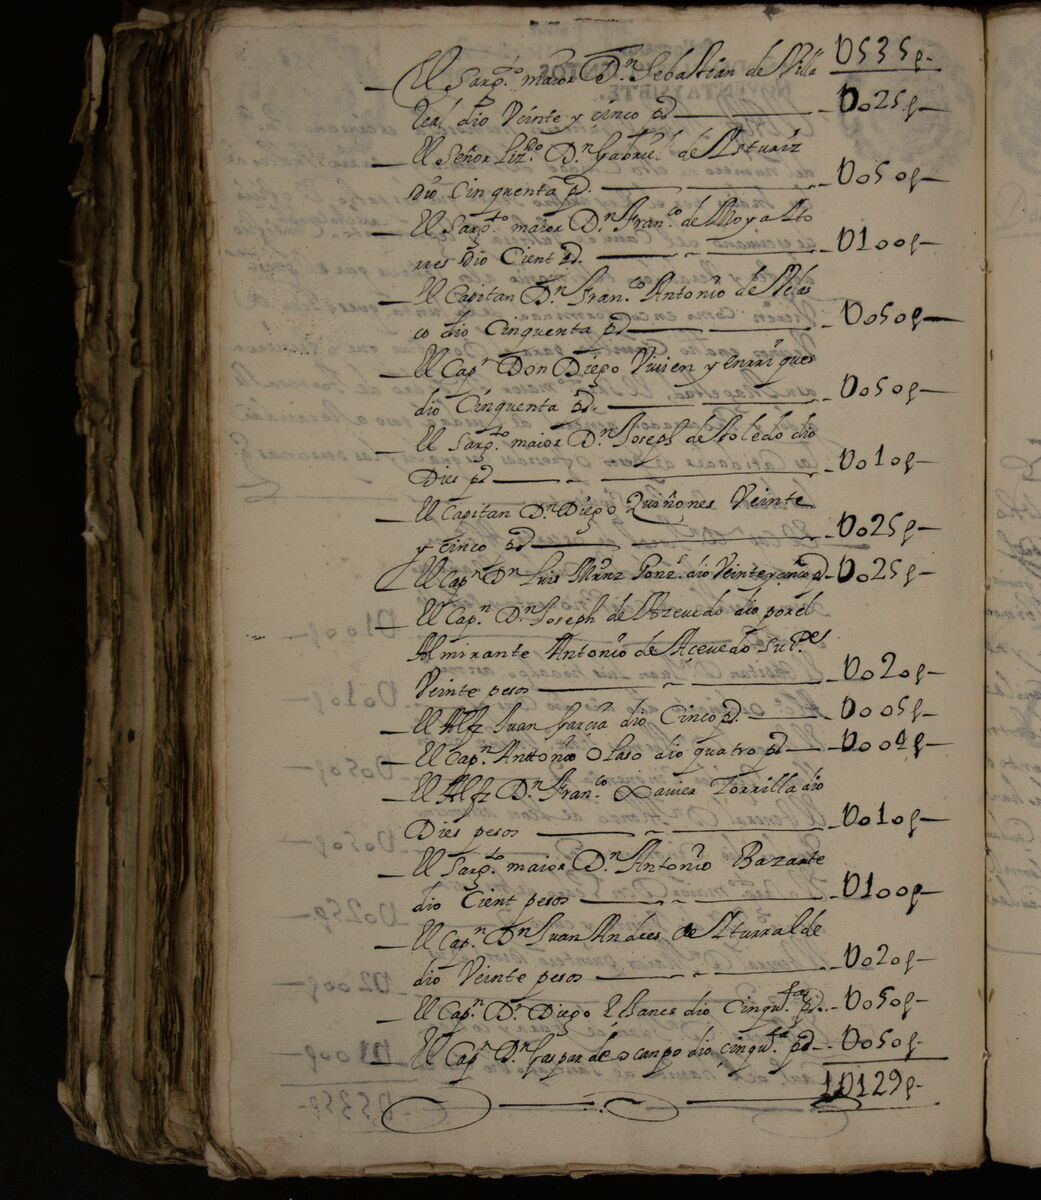 U535p.
_ El Sargto. maior Dn. Sebastian de Villa
Real dio Veinte y cinco ps ——— U025p—
_ El Señor Lizdo. Dn. Gabriel de Asturiz
dio Cinquenta ps. ——— U050p—
_ El Sargto. maior Dn. Franco. de Moya
rres dio Cient ps. ——— U100p—
_ El Capitan Dn. Franco. Antonio de Velas
co dio Cinquenta ps ——— U050p—
_ El Capn. Don Diego Vivien y enrriques
dio Cinquenta ps. ——— U050p—
_ El Sargto. maior Dn. Joseph de Toledo dio
Dies ps ——— U010p—
_ El Capitan Dn. Diego Quiñones Veinte
y cinco ps ——— U025p—
_ El Capn. Dn. Luis Munz Gonz. dio Veinte y cinco ps U025p—
_ El Capn. Dn. Joseph de Azevedo dio por el
Almirante Antonio de Açevedo su Pe.
Veinte pesos ——— U020p—
_ El Alfz Juan Garcia dio Cinco ps. —— U005p—
_ El Capn. Anttonio Olaso dio quatro ps —— U004p—
_ El Alfz Dn. Franco. Xavier Torrilla dio
Dies pesos ——— U010p—
_ El Sargto. maior Dn. Antonio Bazarte
dio Çient pesos ——— U100p—
_ El Capn. Dn Juan Andres de Yturralde
dio Veinte pesos ——— U020p—
_ El Capn. Dn. Diego Illanes dio Cinqta. ps. — U050p—
_ El Capn. Dn. Gaspar de ocanpo dio cinqta. ps — U050p—
1U129p—